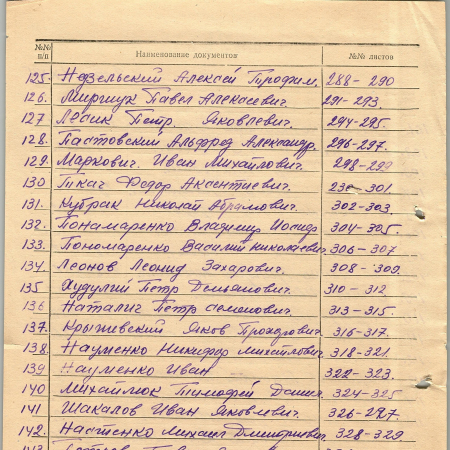 №№ п/п Наименование документов №№ листов
125. Недзельский Алексей Трофим. 288 - 290
126. Миршук Павел Алексеевич. 291 - 293.
127 Лесик Петр Яковлевич. 294 - 295.
128. Пастовский Альфред Александр. 296 - 297.
129. Маркович Иван Михайлович. 298 - 299
130 Ткач Федор Аксентиевич. 301.
131. Кубрак Николай Абрамович. 302 - 303.
132. Понамаренко Владимир Иосиф 304 - 305.
133. Пономаренко Василий Николаевич 306 - 307
134. Леонов Леонид Захарович. 308 - 309.
135 Худулий Петр Демьянович. 310 - 312.
136 Наталич Петр Семенович. 313 - 315.
137. Крыжевский Яков Прохорович. 316 - 317.
138. Науменко Никифор Михайлович. 318 - 321.
139 Науменко Иван 322 - 323.
140 Михайлюк Тимофей Данил. 324 - 325
141 Шакалов Иван Яковлевич. 326 - 327
142. Настенко Михаил Дмитриевич. 328 - 329
143.